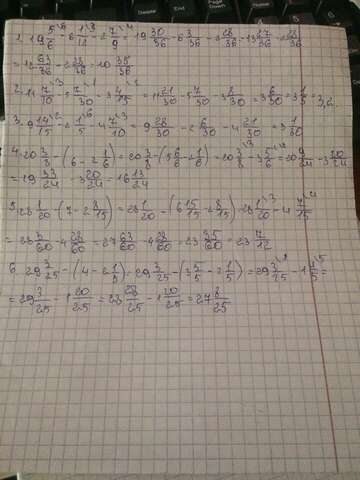 1. 19 5/6 - 6 1/12 - 2 7/9 = 19 30/36 - 6 3/36 - 2 28/36 = 13 27/36 - 2 28/36
= 12 63/36 - 2 28/36 = 10 35/36
2. 11 7/10 - 5 7/30 - 3 4/15 = 11 21/30 - 5 7/30 - 3 8/30 = 3 6/30 = 3 1/5 = 3,2.
3. 9 14/15 - 2 1/5 - 4 7/10 = 9 28/30 - 2 6/30 - 4 21/30 = 3 1/30
4. 20 3/8 - (6 - 2 1/6) = 20 3/8 - (5 6/6 - 2 1/6) = 20 3/8 - 3 5/6 = 20 9/24 - 3 20/24
= 19 33/24 - 3 20/24 = 16 13/24
5. 28 1/20 - (7 - 2 8/15) = 28 1/20 - (6 15/15 - 2 8/15) = 28 1/20 - 4 7/15
= 28 3/60 - 4 28/60 = 27 63/60 - 4 28/60 = 23 35/60 = 23 7/12
6. 29 3/25 - (4 - 2 1/5) = 29 3/25 - (3 5/5 - 2 1/5) = 29 3/25 - 1 4/5 =
= 29 3/25 - 1 20/25 = 28 28/25 - 1 20/25 = 27 8/25